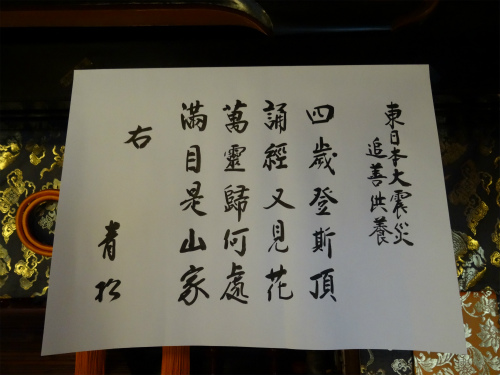 東日本大震災
追善供養
四歳登斯頂
誦經又見花
萬靈歸何處
滿目是山家
右
青松